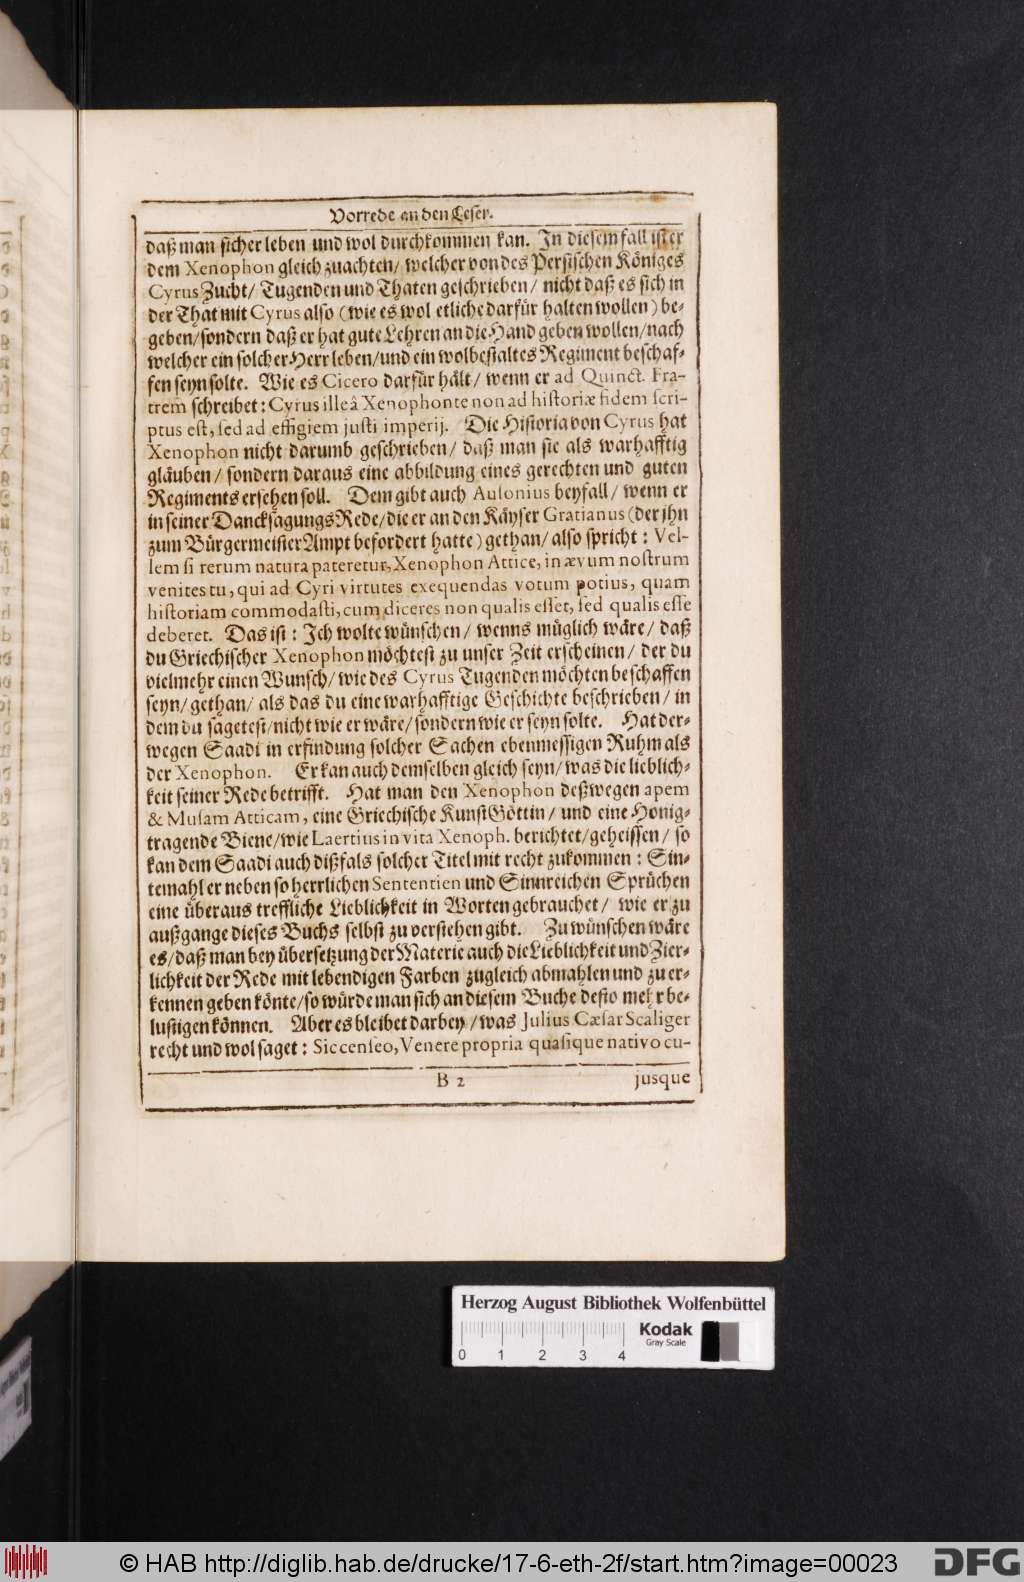 Vorrede an den Leser.
daß man sicher leben und wol durchkommen kan. In diesem fall ist er
dem Xenophon gleich zuachten/ welcher von des Persischen Königes
Cyrus Zucht/ Tugenden und Thaten geschrieben/ nicht daß es sich in
der That mit Cyrus also (wie es wol etliche darfür halten wollen) be-
geben/sondern daß er hat gute Lehren an die Hand geben wollen/nach
welcher ein solcher Herr leben/und ein wolbestaltes Regiment beschaf-
fen seyn solte. Wie es Cicero darfür hält/ wenn er ad Quinct. Fra-
trem schreibet: Cyrus ille â Xenophonte non ad historiæ fidem scri-
ptus est, sed ad effigiem justi imperij. Die Historia von Cyrus hat
Xenophon nicht darumb geschrieben/ daß man sie als warhafftig
gläuben/ sondern daraus eine abbildung eines gerechten und guten
Regiments ersehen soll. Dem gibt auch Ausonius beyfall/ wenn er
in seiner DancksagungsRede/die er an den Käyser Gratianus (der jhn
zum BürgermeisterAmpt befordert hatte) gethan/ also spricht: Vel-
lem si rerum natura pateretur, Xenophon Attice, in ævum nostrum
venires tu, qui ad Cyri virtutes exequendas votum potius, quam
historiam commodasti, cum diceres non qualis esset, sed qualis esse
deberet. Das ist: Ich wolte wünschen/ wenns müglich wäre/ daß
du Griechischer Xenophon möchtest zu unser Zeit erscheinen/ der du
vielmehr einen Wunsch/ wie des Cyrus Tugenden möchten beschaffen
seyn/ gethan/ als das du eine warhafftige Geschichte beschrieben/ in
dem du sagetest/nicht wie er wäre/ sondern wie er seyn solte. Hat der-
wegen Saadi in erfindung solcher Sachen ebenmessigen Ruhm als
der Xenophon. Er kan auch demselben gleich seyn/ was die lieblich-
keit seiner Rede betrifft. Hat man den Xenophon deßwegen apem
& Musam Atticam, eine Griechische KunstGöttin/ und eine Honig-
tragende Biene/wie Laertius in vita Xenoph. berichtet/geheissen/ so
kan dem Saadi auch dißfals solcher Titel mit recht zukommen: Sin-
temahl er neben so herrlichen Sententien und Sinnreichen Sprüchen
eine überaus treffliche Lieblichkeit in Worten gebrauchet/ wie er zu
außgange dieses Buchs selbst zu verstehen gibt. Zu wünschen wäre
es/daß man bey übersetzung der Materie auch die Lieblichkeit und Zier-
lichkeit der Rede mit lebendigen Farben zugleich abmahlen und zu er-
kennen geben könte/so würde man sich an diesem Buche desto mehr be-
lustigen können. Aber es bleibet darbey/was Julius Cæsar Scaliger
recht und wol saget: Sic censeo, Venere propria quasique nativo cu-
B 2 jusque
Herzog August Bibliothek Wolfenbüttel
Kodak
Gray Scale
0 1 2 3 4
© HAB http://diglib.hab.de/drucke/17-6-eth-2f/start.htm?image=00023
DFG